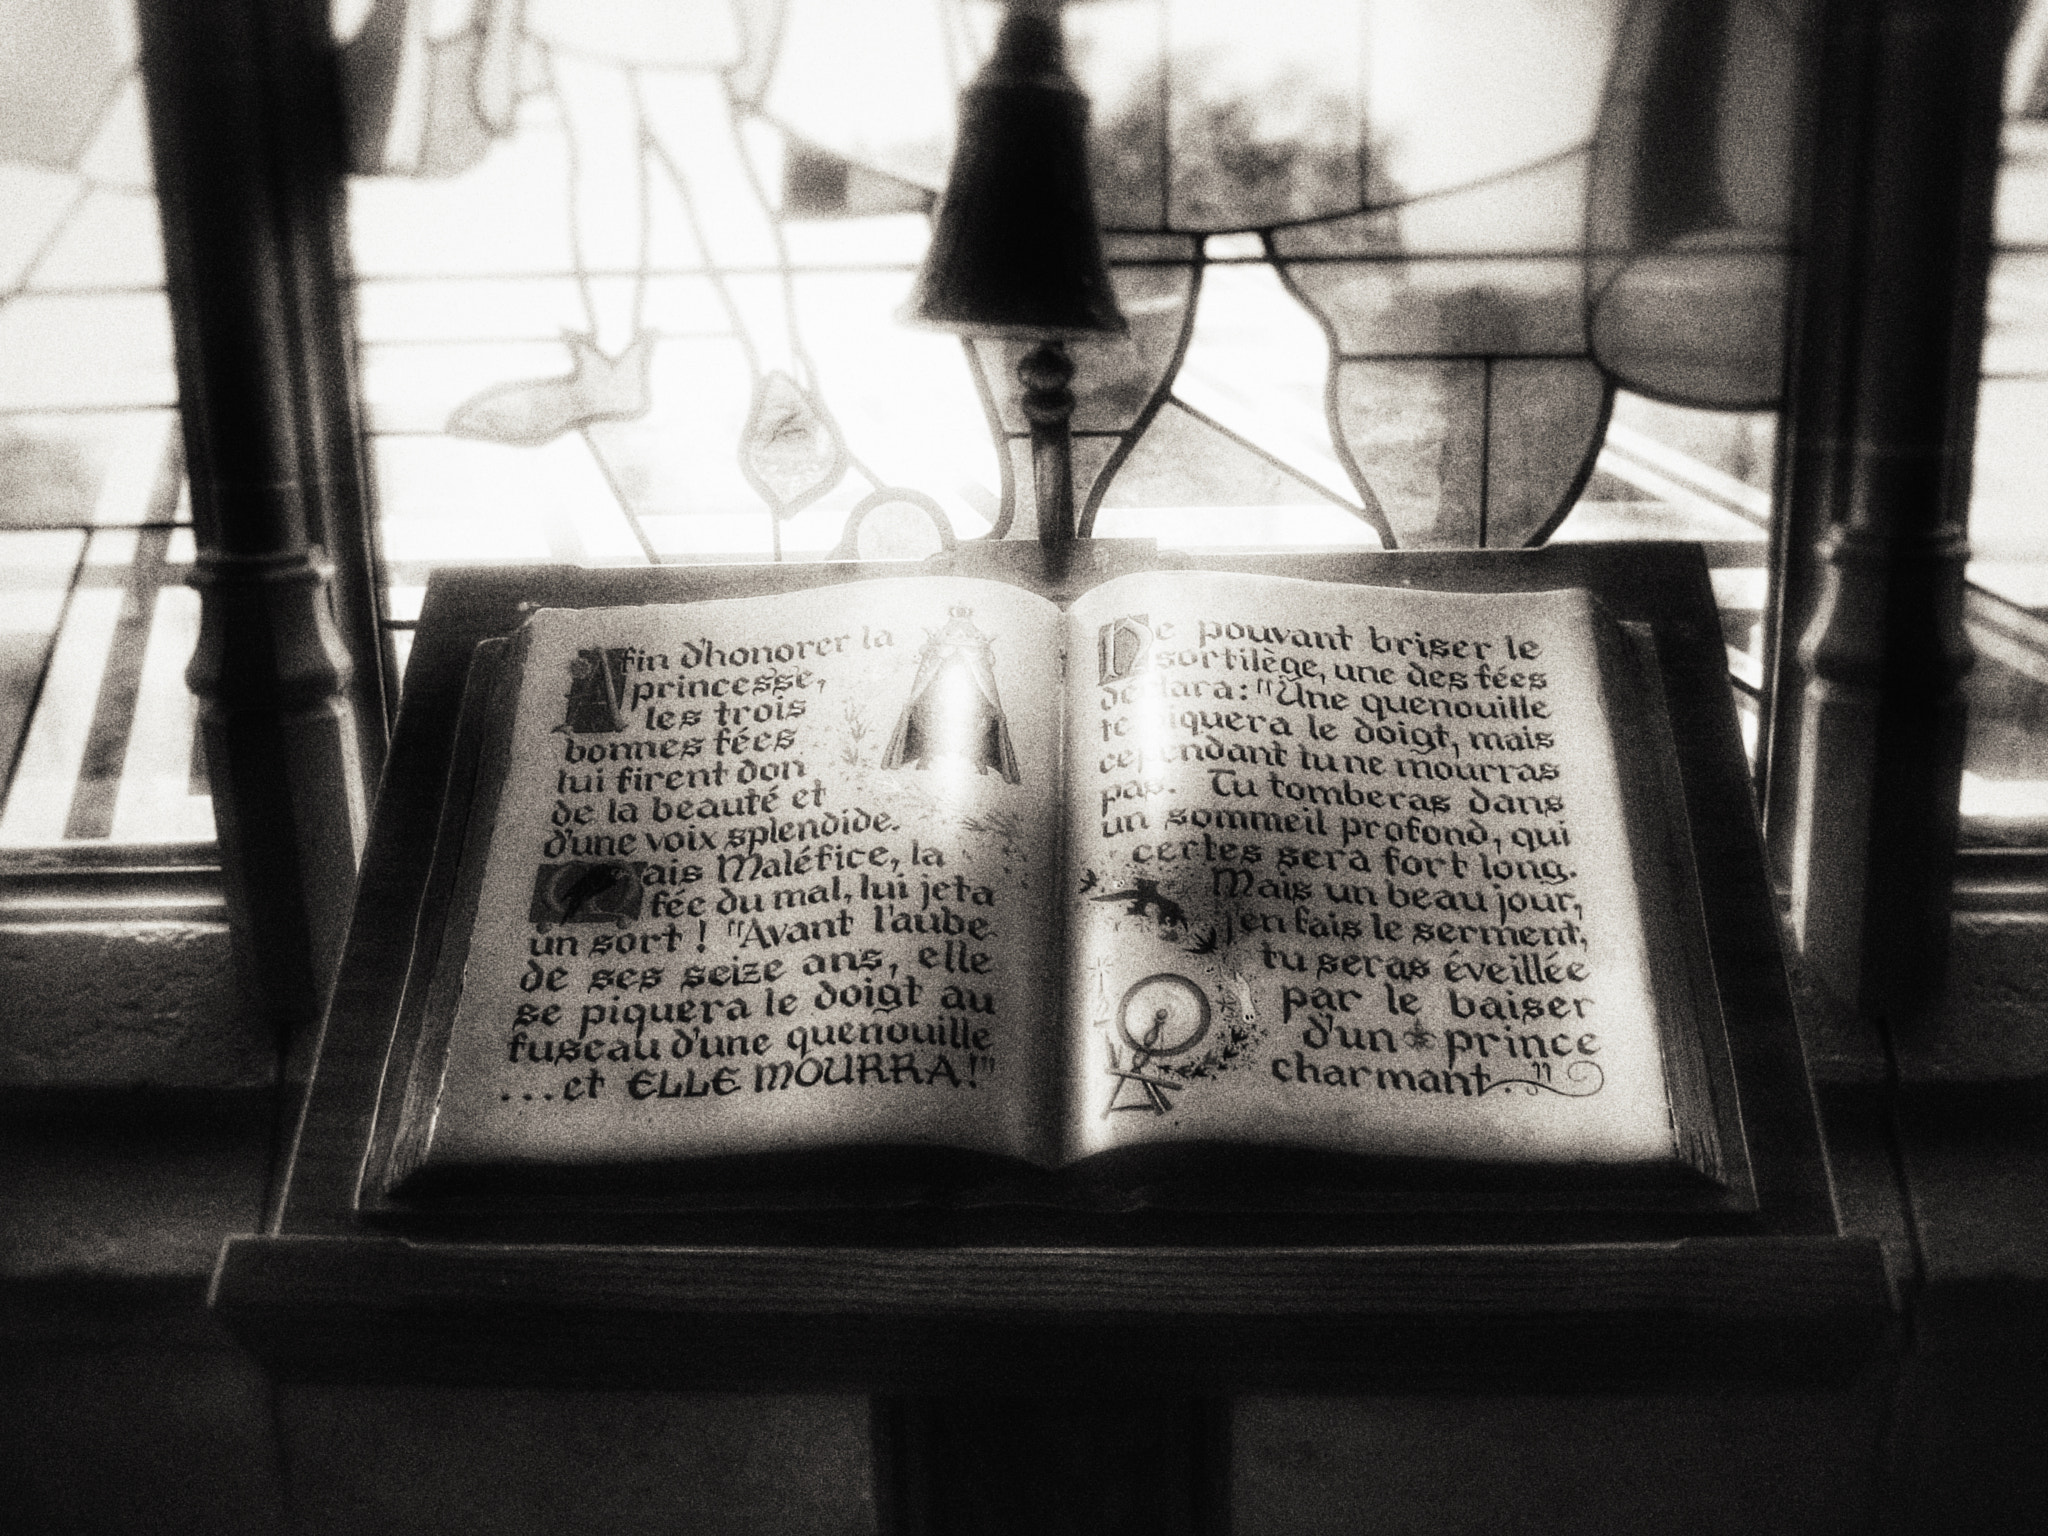 Afin d'honorer la
princesse,
les trois
bonnes fées
lui firent don
de la beauté et
d'une voix splendide.
Mais Maléfice, la
fée du mal, lui jeta
un sort ! "Avant l'aube
de ses seize ans, elle
se piquera le doigt au
fuseau d'une quenouille
...et ELLE MOURRA!"
Ne pouvant briser le
sortilège, une des fées
déclara: "Une quenouille
te piquera le doigt, mais
cependant tu ne mourras
pas. Tu tomberas dans
un sommeil profond, qui
certes sera fort long.
Mais un beau jour,
j'en fais le serment,
tu seras éveillée
par le baiser
d'un prince
charmant."